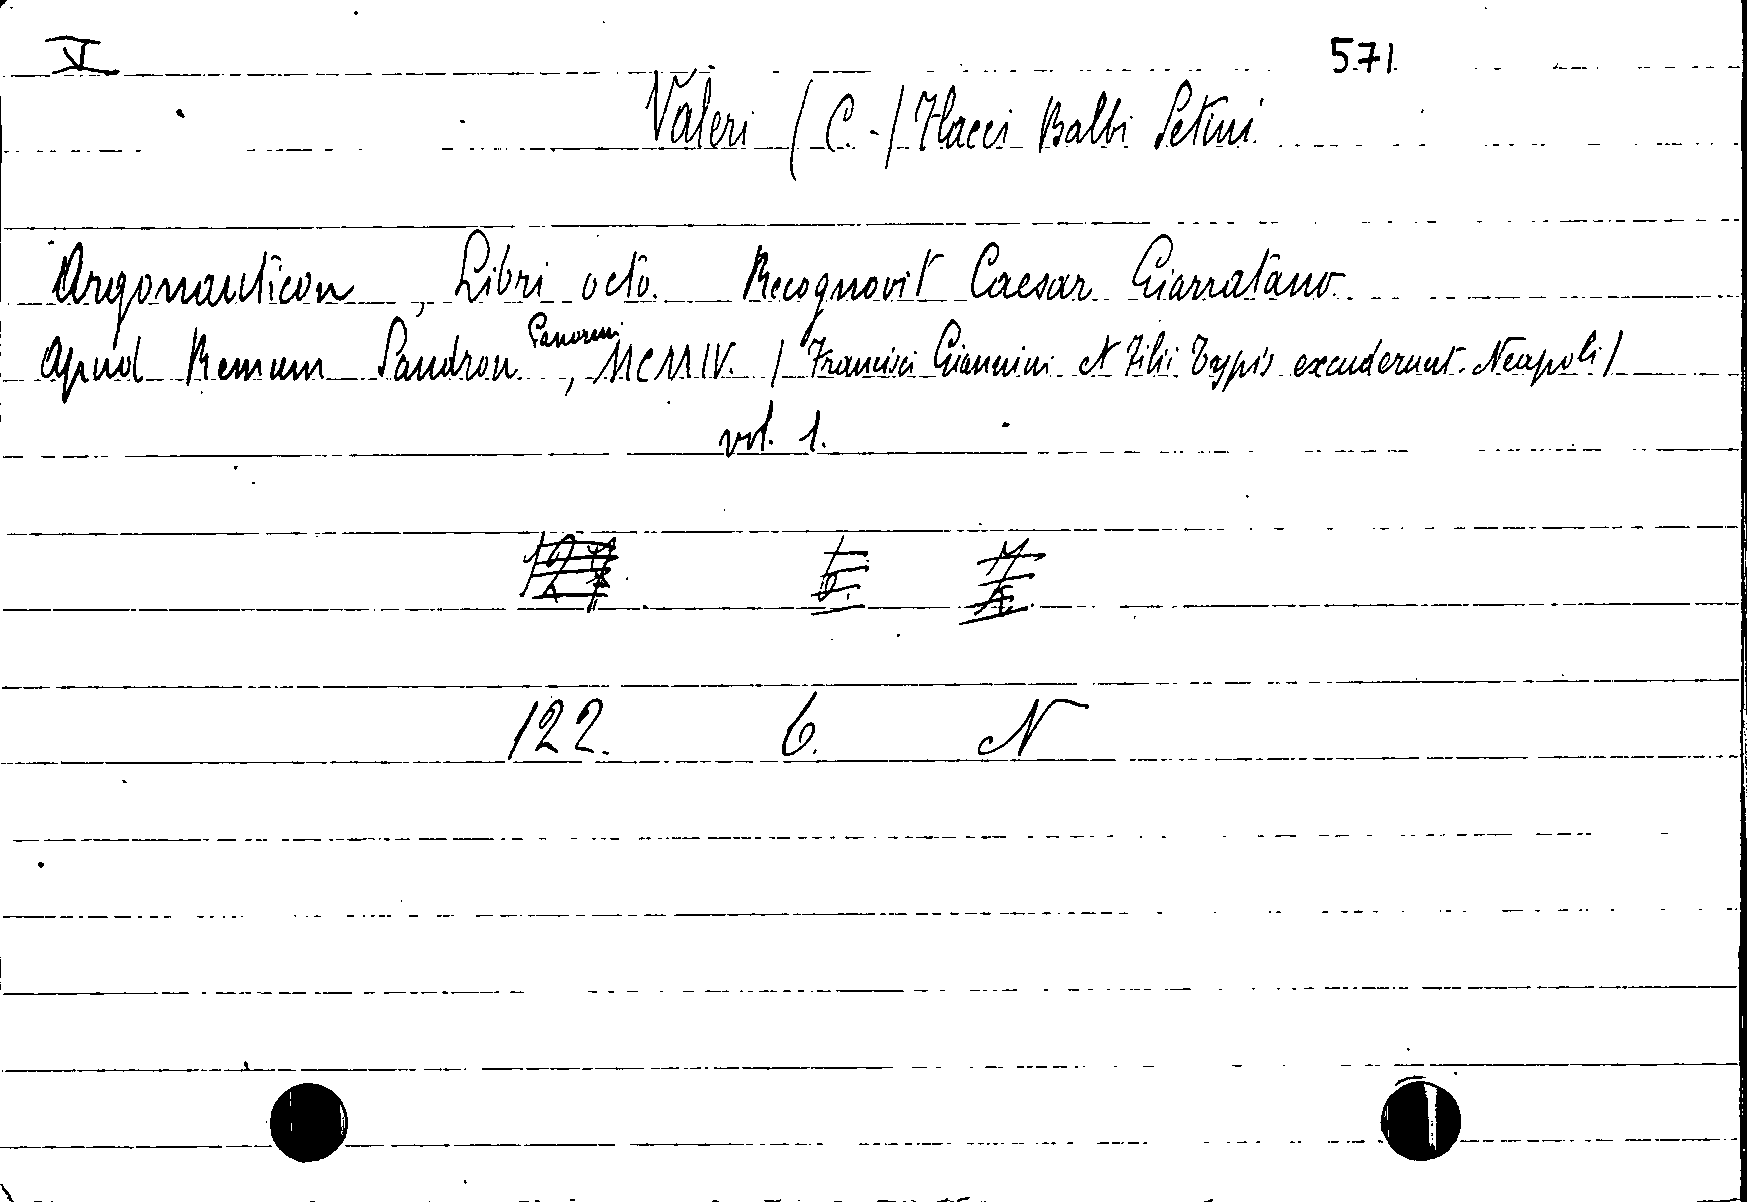 V 571
Valeri (C.-) Flacci Balbi Setini
Argonauticon, Libri octo. Recognovit Caesar Giarratano
Apud Remum Sandron Panormi, MCMIV. (Francisci Giannini et Filii Typis excuderunt. Neapoli)
vol. 1.
122. 6. N